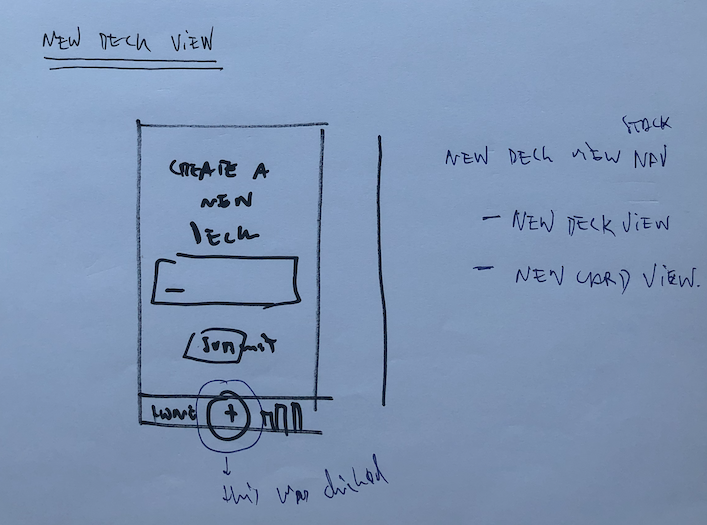 NEW DECK VIEW
CREATE A
NEW
DECK
SUBMIT
HOME +
this was clicked
STACK
NEW DECK VIEW NAV
- NEW DECK VIEW
- NEW CARD VIEW.